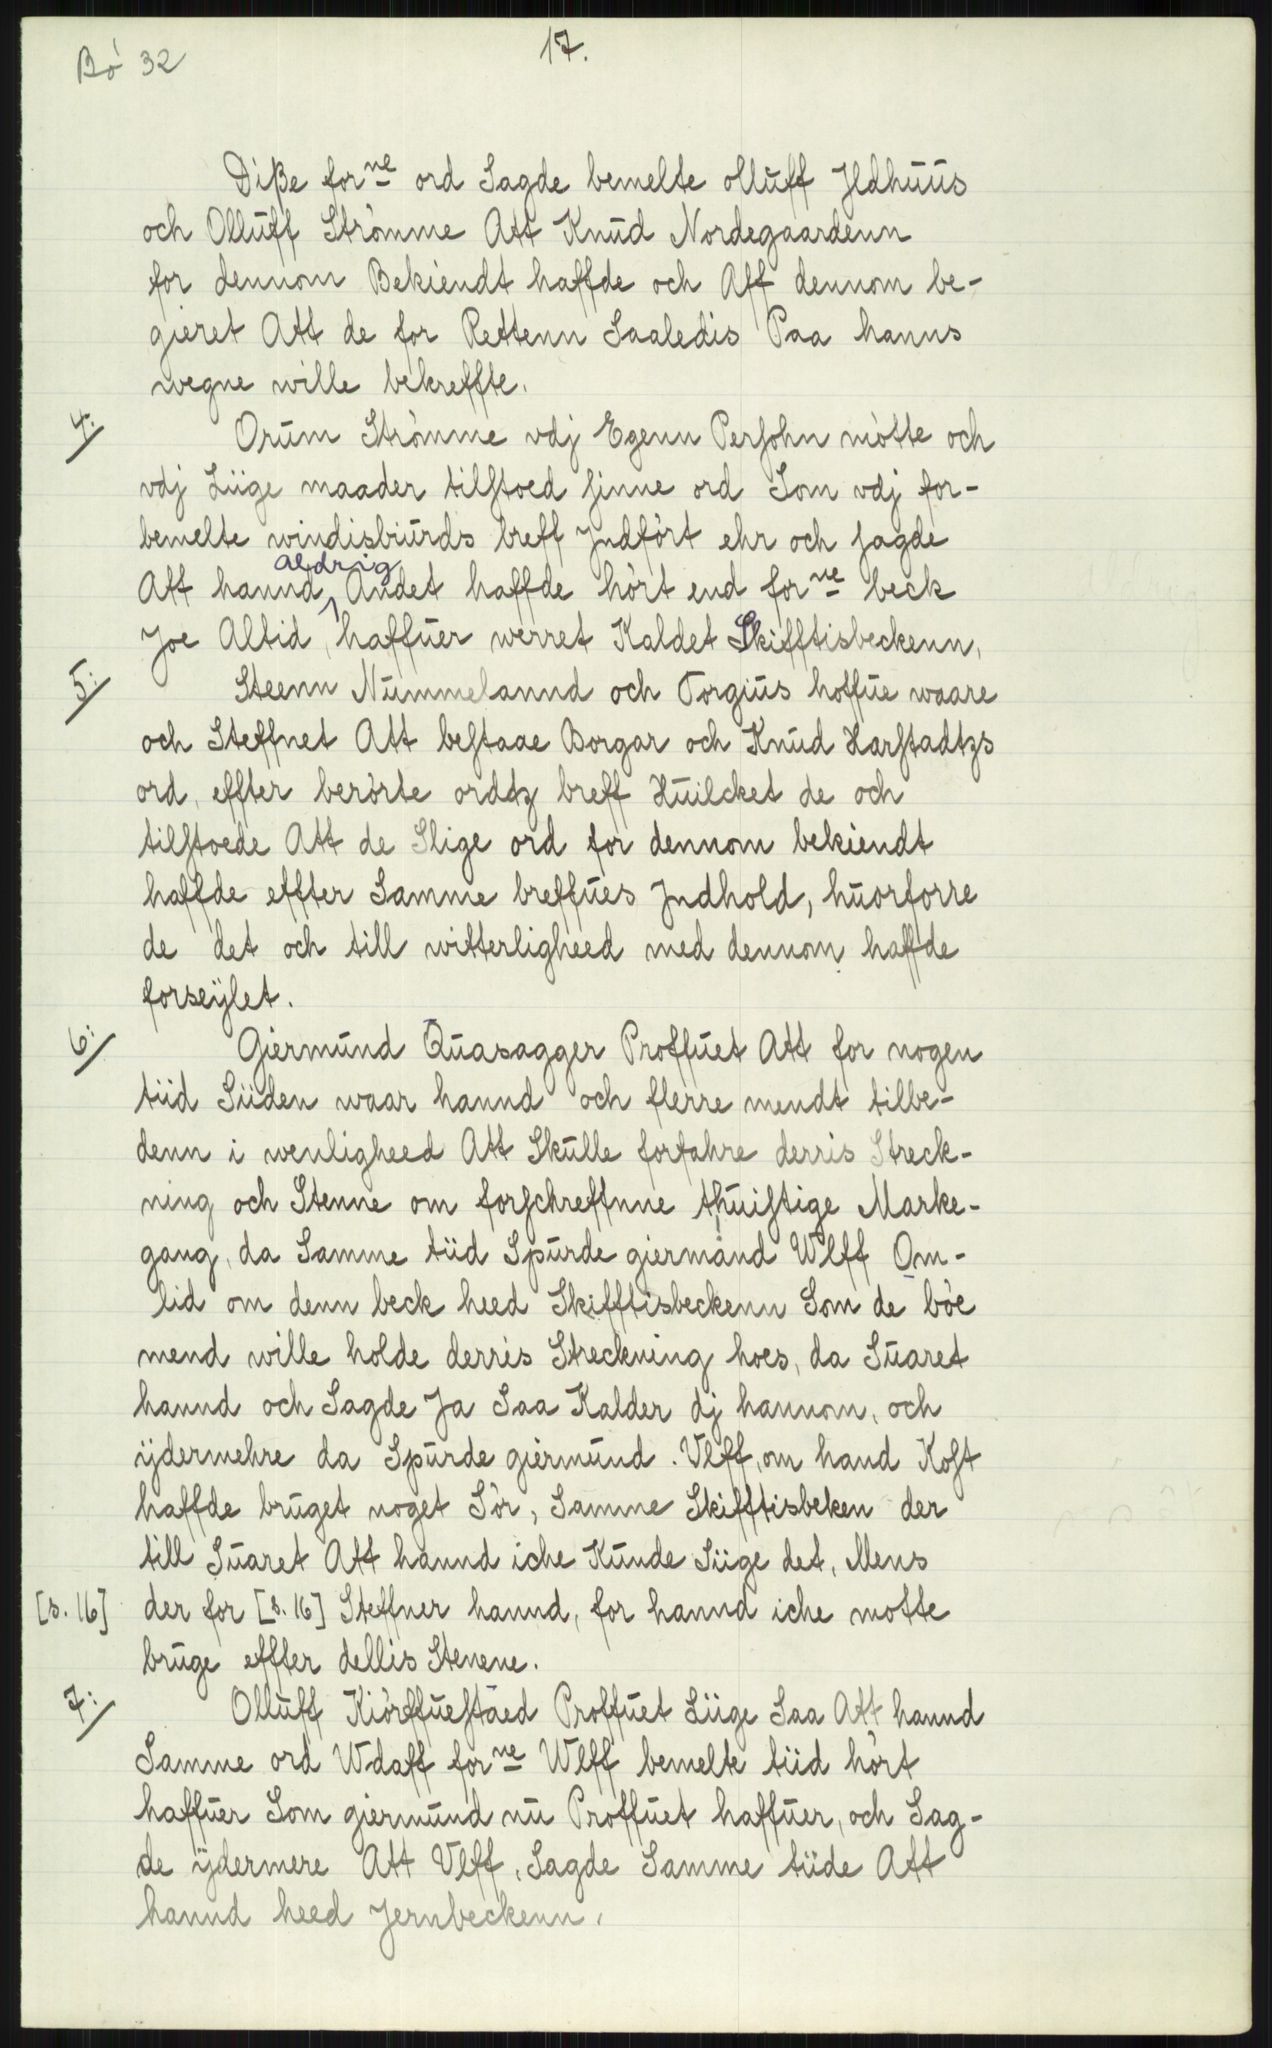 Bò 32
17.
Diße forne ord Sagde bemelte olluff Jldhuus
och Olluff Strømme Att Knud Nordegaardenn
for dennom Bekiendt haffde och Aff dennom be-
gieret Att de for Rettenn Saaledis Paa hanns
wegne wille bekreffte.
4: Orum Strømme vdj Egenn Persohn møtte och
vdj Liige maader tilstoed sinne ord Som vdj for-
bemelte windisbiurds breff Jndført ehr och sagde
aldrig
Att hannd Andet haffde hørt end forne beck
Joe Altid, haffuer werret Kaldet Skifftisbeckenn,
5: Steenn Nummelannd och Torgius hoffue waare
och Steffnet Att bestaae Borgar och Knud Harstadtzs
ord, effter berørte ordtz breff Huilcket de och
tilstoede Att de Slige ord for dennom bekiendt
haffde effter Samme breffues Jndhold, huorforre
de det och till witterligheed med dennom haffde
forseÿlet.
6: Giermund Quasagger Proffuet Att for nogen
tiid Siiden waar hannd och flerre mendt tilbe-
denn i wenligheed Att Skulle forfahre derris Streck-
ning och Stenne om forschreffnne thuistige Marke-
gang, da Samme tiid Spurde giermund Wlff Om-
lid om denn beck heed Skifftisbeckenn Som de bøe
mend wille holde derris Streckning hoes, da Suaret
hannd och Sagde Ja Saa Kalder dj hannom, och
ÿdermehre da Spurde giermund. Vlff, om hand Kost
haffde bruget noget Sør, Samme Skifftisbeken der
till Suaret Att hannd iche Kunde Siige det, Mens
[s. 16] der for [s. 16] Steffner hannd, for hannd iche motte
bruge effter dellis Stenene.
7: Olluff Kiørffuestaed Proffuet Liige Saa Att hannd
Samme ord Wdaff forne Wlff bemelte tiid hørt
haffuer Som giermund nu Proffuet haffuer, och Sag-
de ÿdermere Att Vlff, Sagde Samme tiide Att
hannd heed Jernbeckenn,